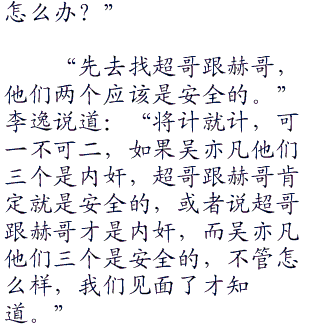 怎么办？”
“先去找超哥跟赫哥，
他们两个应该是安全的。”
李逸说道：“将计就计，可
一不可二，如果吴亦凡他们
三个是内奸，超哥跟赫哥肯
定就是安全的，或者说超哥
跟赫哥才是内奸，而吴亦凡
他们三个是安全的，不管怎
么样，我们见面了才知
道。”